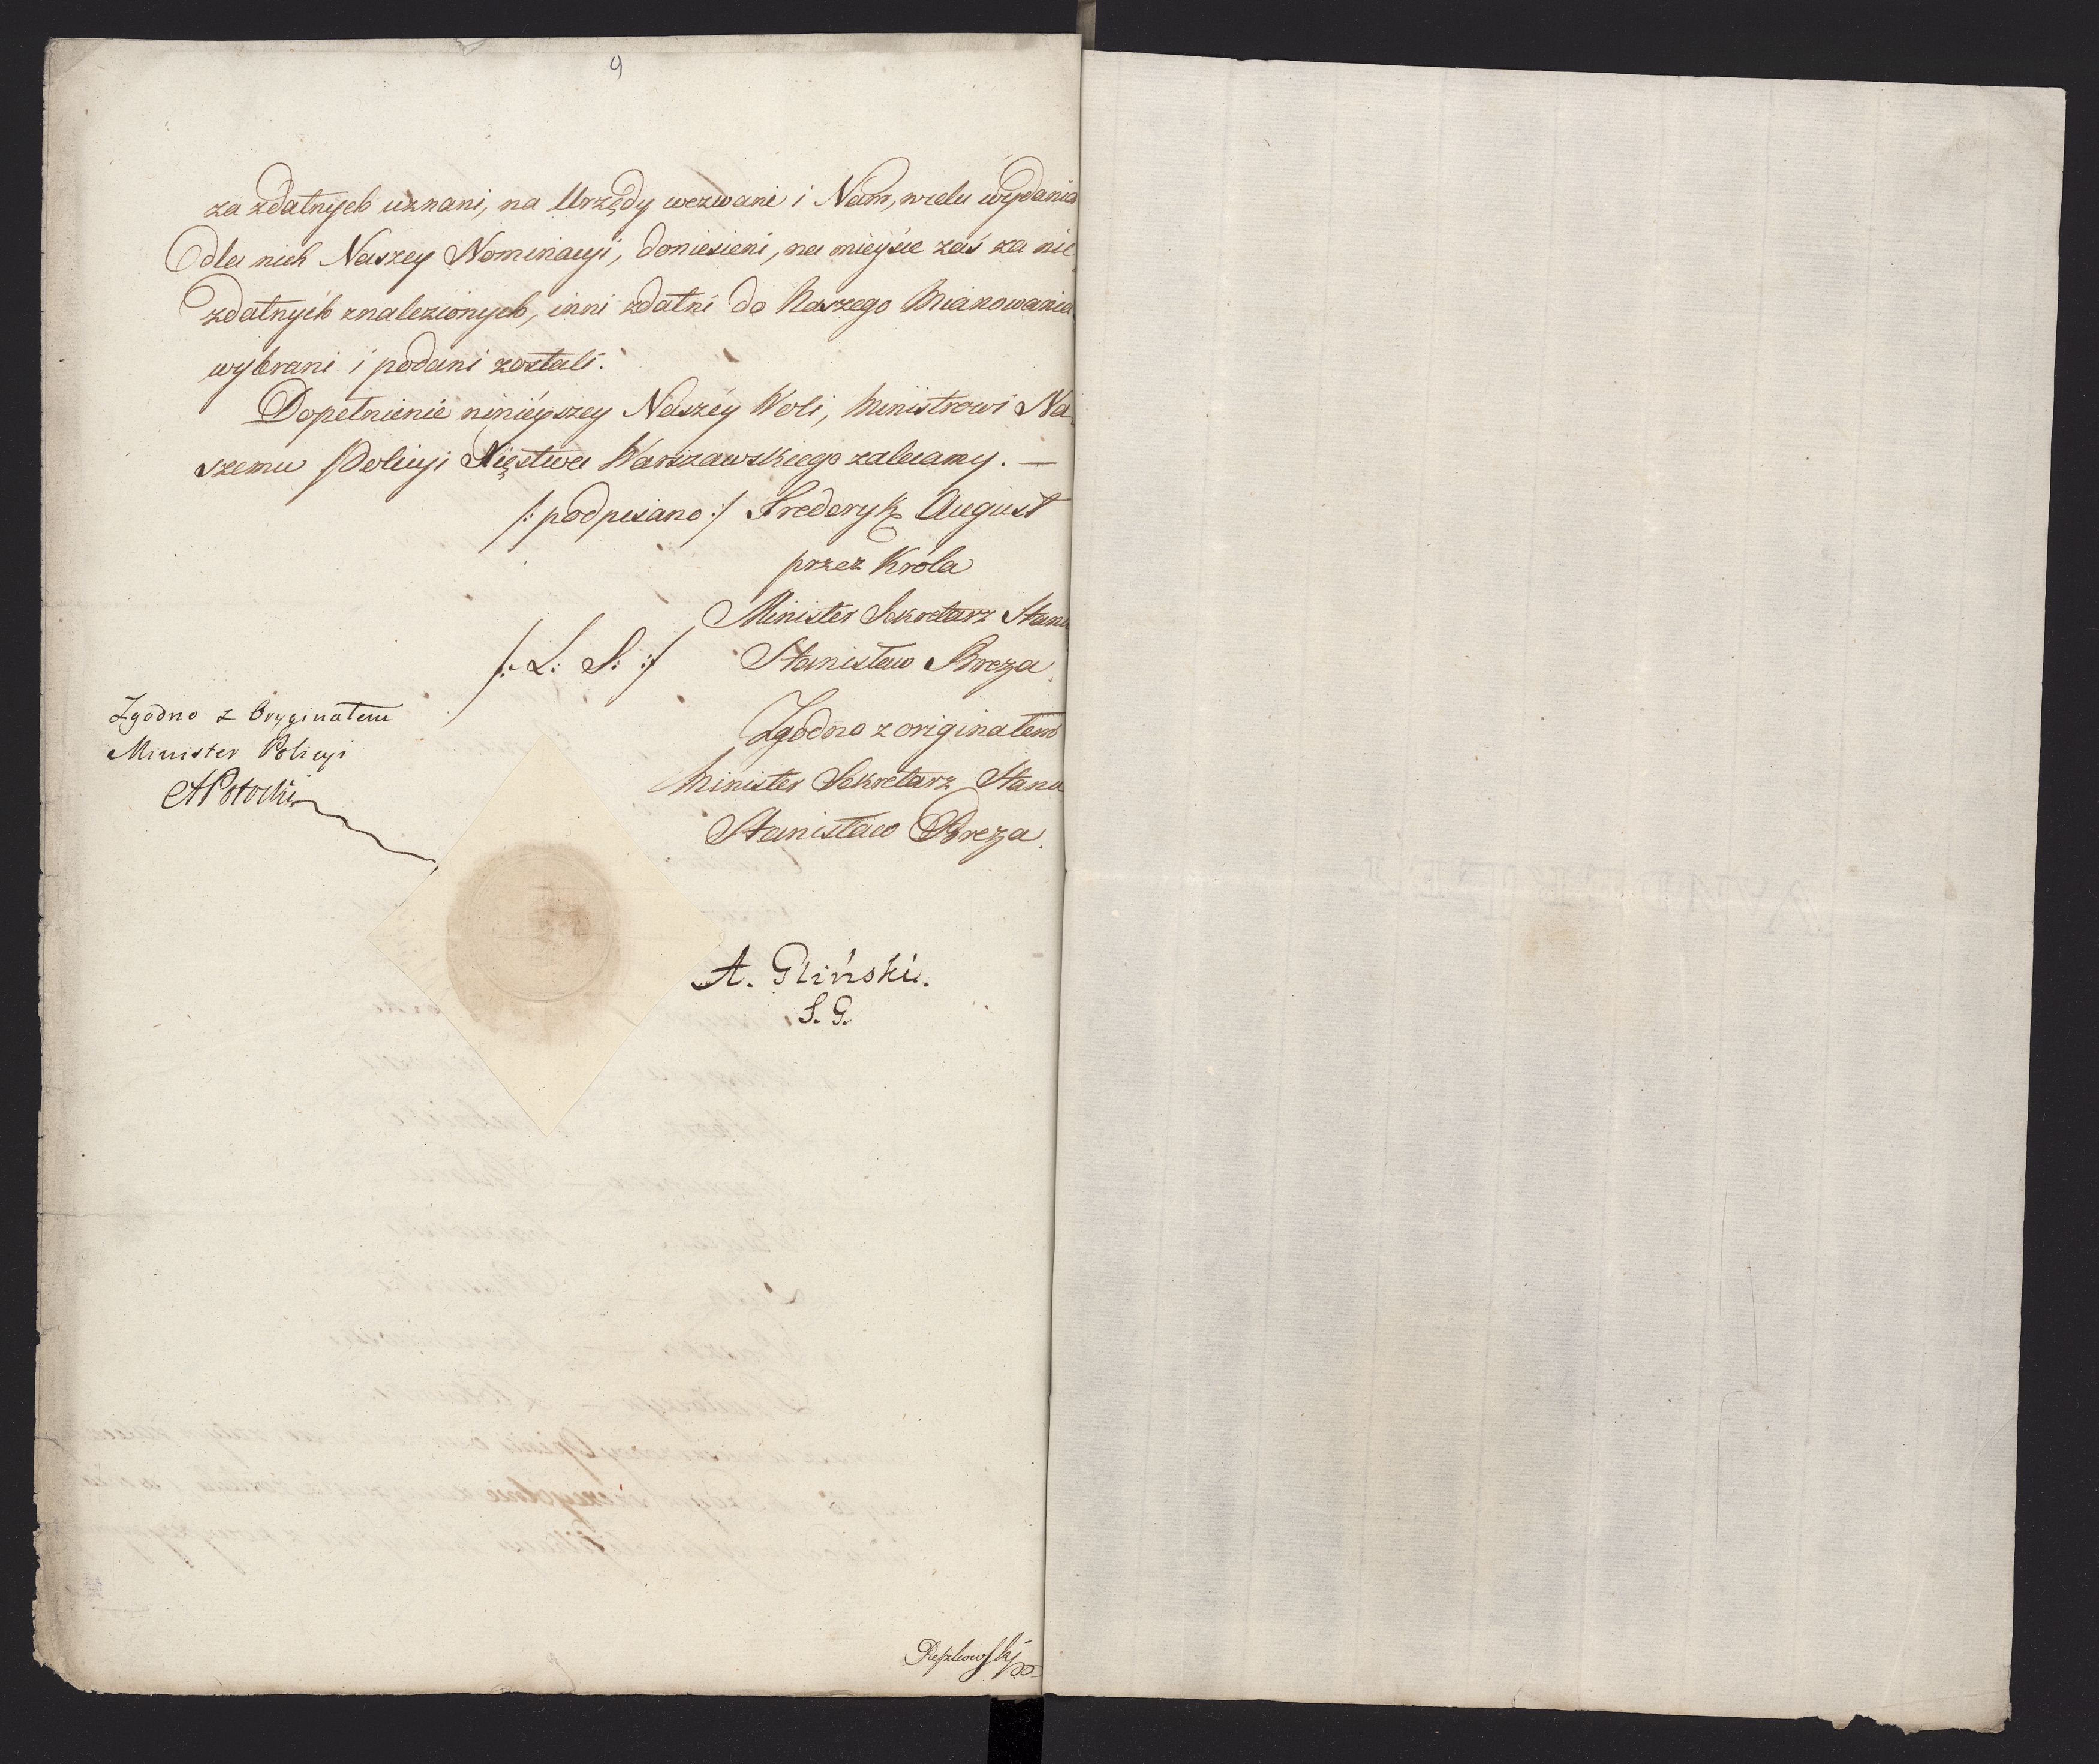 9
za zdatnych uznani, na Urzędy wezwani i Nam, w celu wydania
dla nich Naszey Nominacyi, doniesieni, na mieysce zaś za nie
zdatnych znalezionych, inni zdatni do Naszego Mianowania
wybrani i podani zostali.
Dopełnienie ninieyszey Naszey Woli, Ministrowi Na-
szemu Policyi Xięstwa Warszawskiego zalecamy. —
/: podpisano :/ Frederyk August
przez Króla
Minister Sekretarz Stanu
/: L: S: :/ Stanisław Breza.
Zgodno z originałem
Minister Sekretarz Stanu
Stanisław Breza.
Zgodno z Oryginałem
Minister Policyi
APotocki
A. Gliński.
S. G.